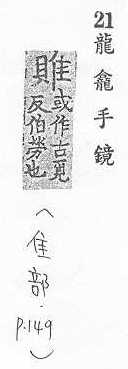 21 龍龕手鏡
或作古覓
反伯勞也
(隹部.
p.149)